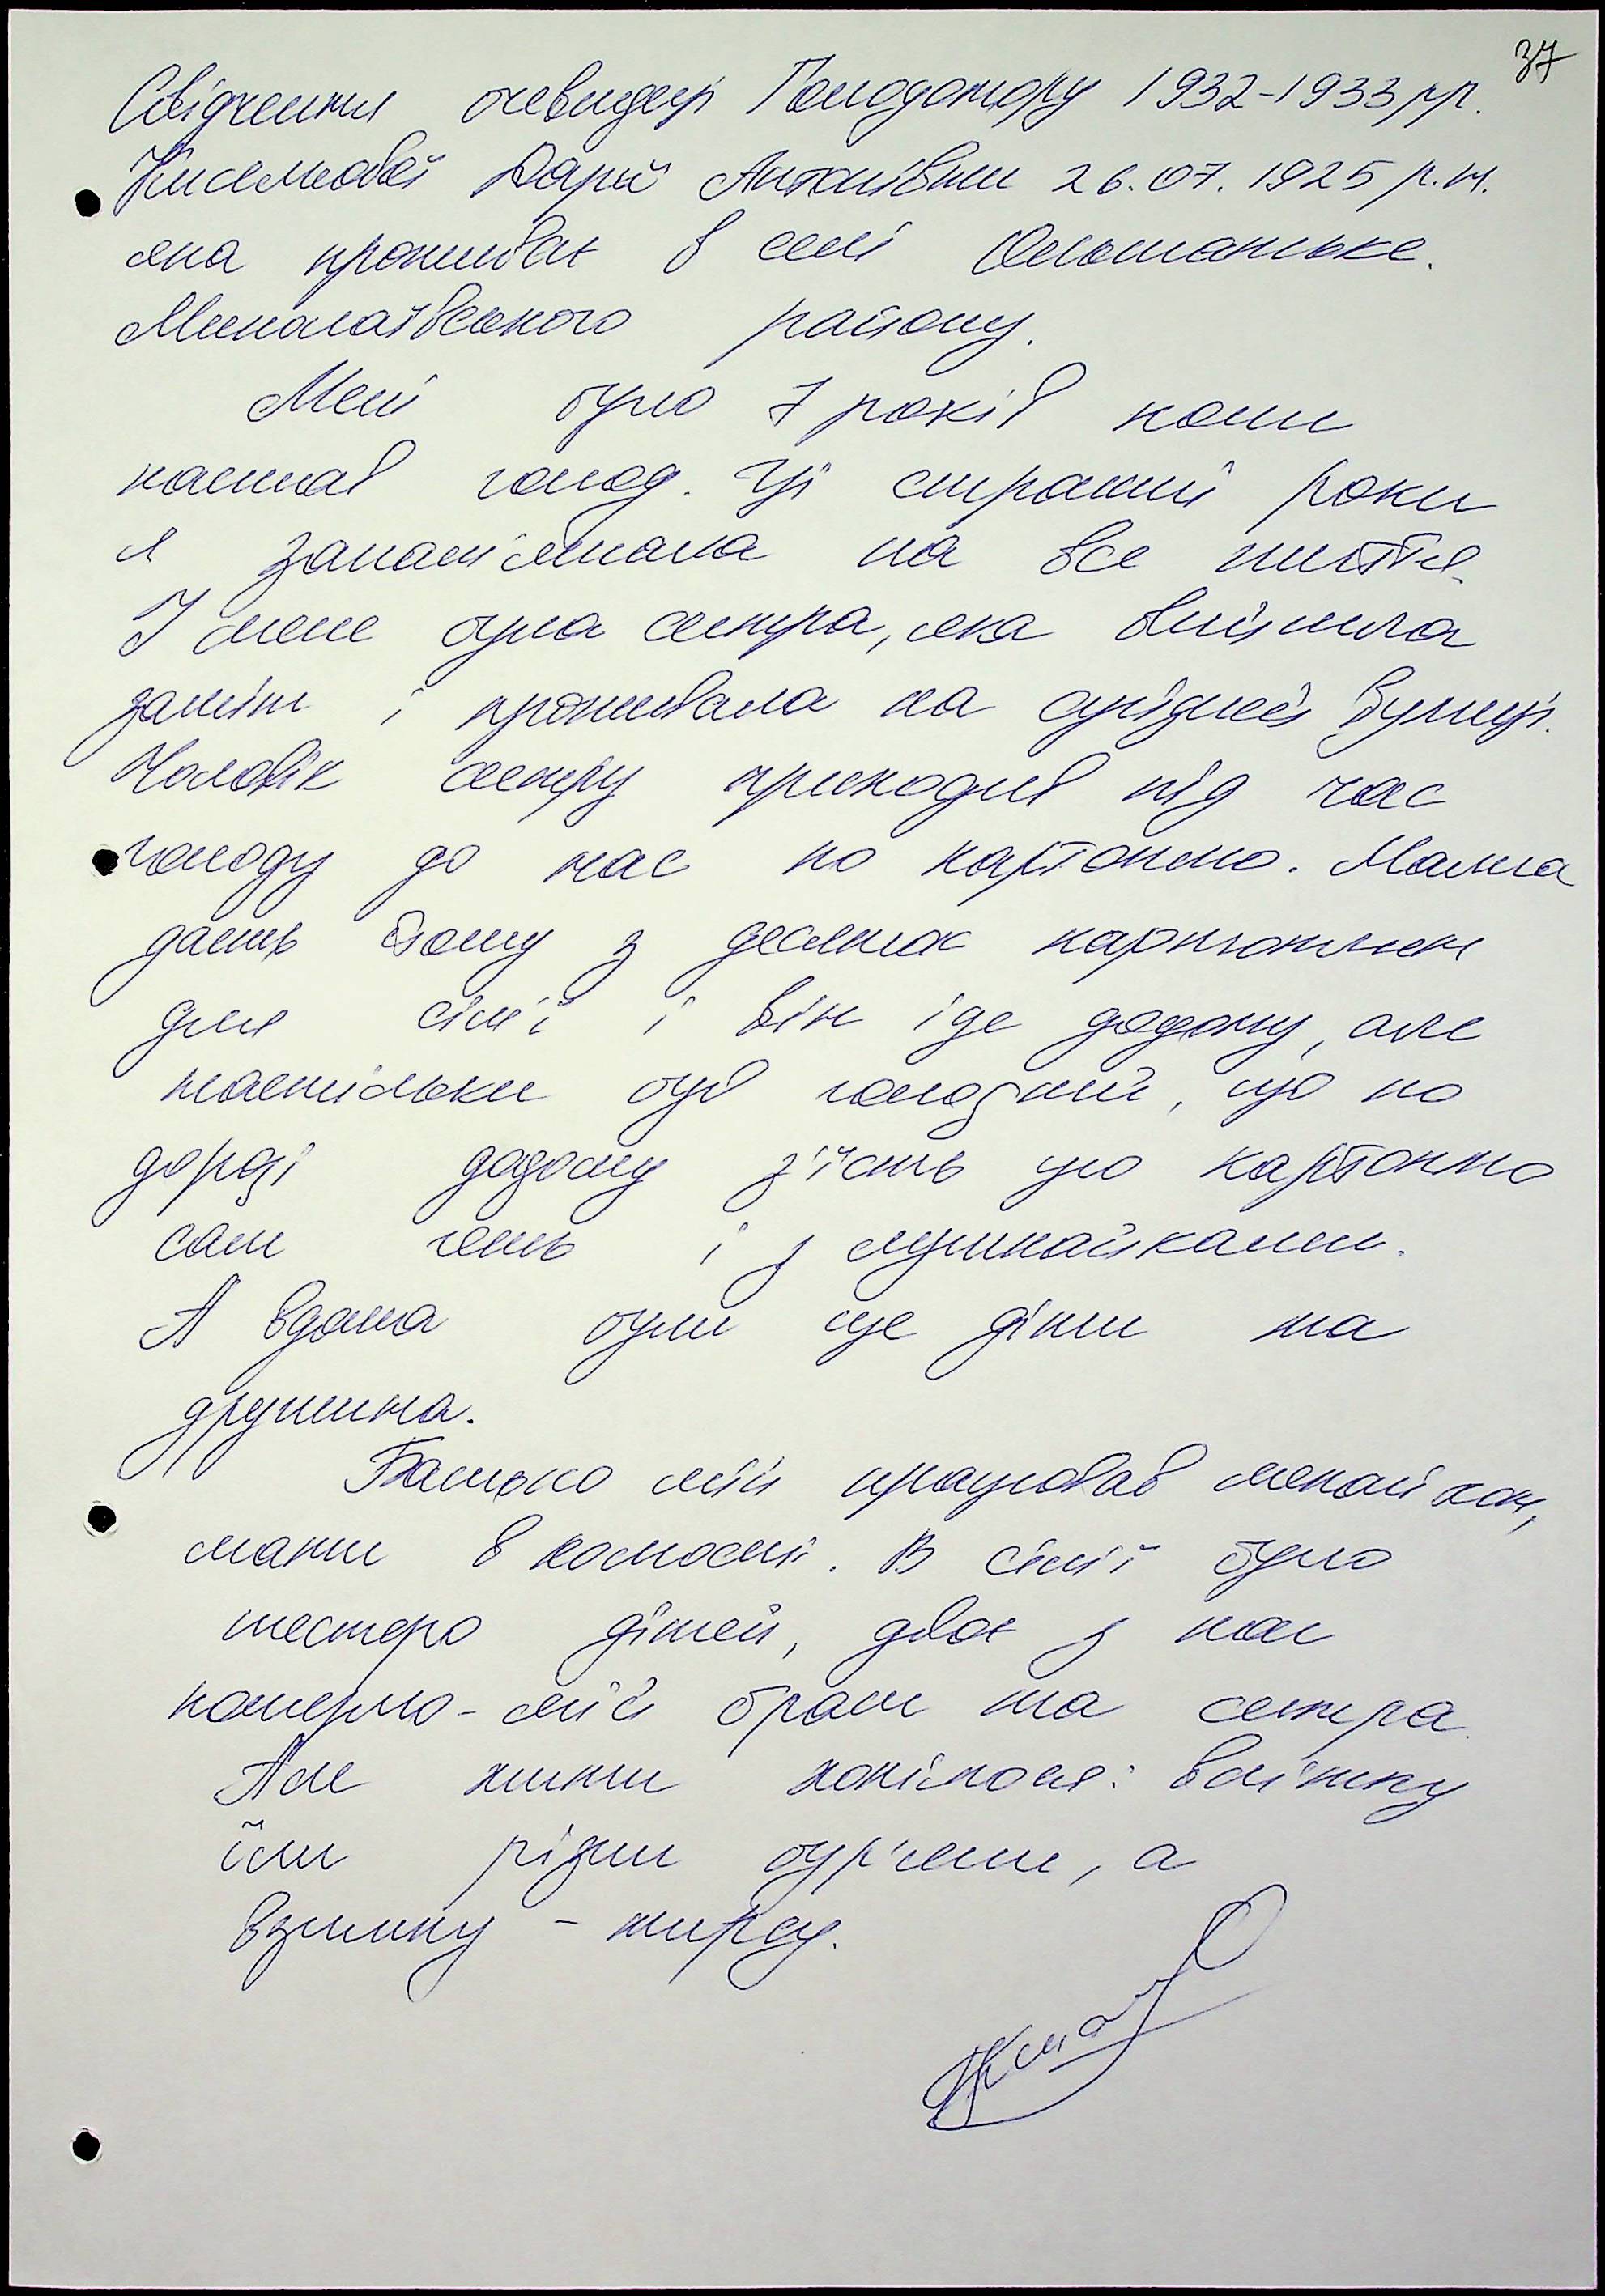 37
Свідчення очевидця Голодомору 1932-1933 рр.
Дарії Антонівни 26.07.1925 р.н.
яка проживає в селі Ольшанське.
Миколаївського району.
Мені було 7 років коли
настав голод. Ці страшні роки
я запам'ятала на все життя.
У мене була сестра, яка вийшла
заміж і проживала на сусідній вулиці.
Чоловік сестри приходив під час
голоду до нас по картоплю. Мама
дасть йому з десяток картоплин
для сім'ї і він іде додому, але
настільки був голодний, що по
дорозі додому з'їсть цю картоплю
сам геть і з лушпайками.
А вдома були ще діти та
дружина.
Батько мій працював
мати в колгоспі. В сім'ї було
шестеро дітей, двоє з нас
померло - мій брат та сестра.
Але жити хотілося: влітку
їли різни бур'яни, а
взимку - макуху.